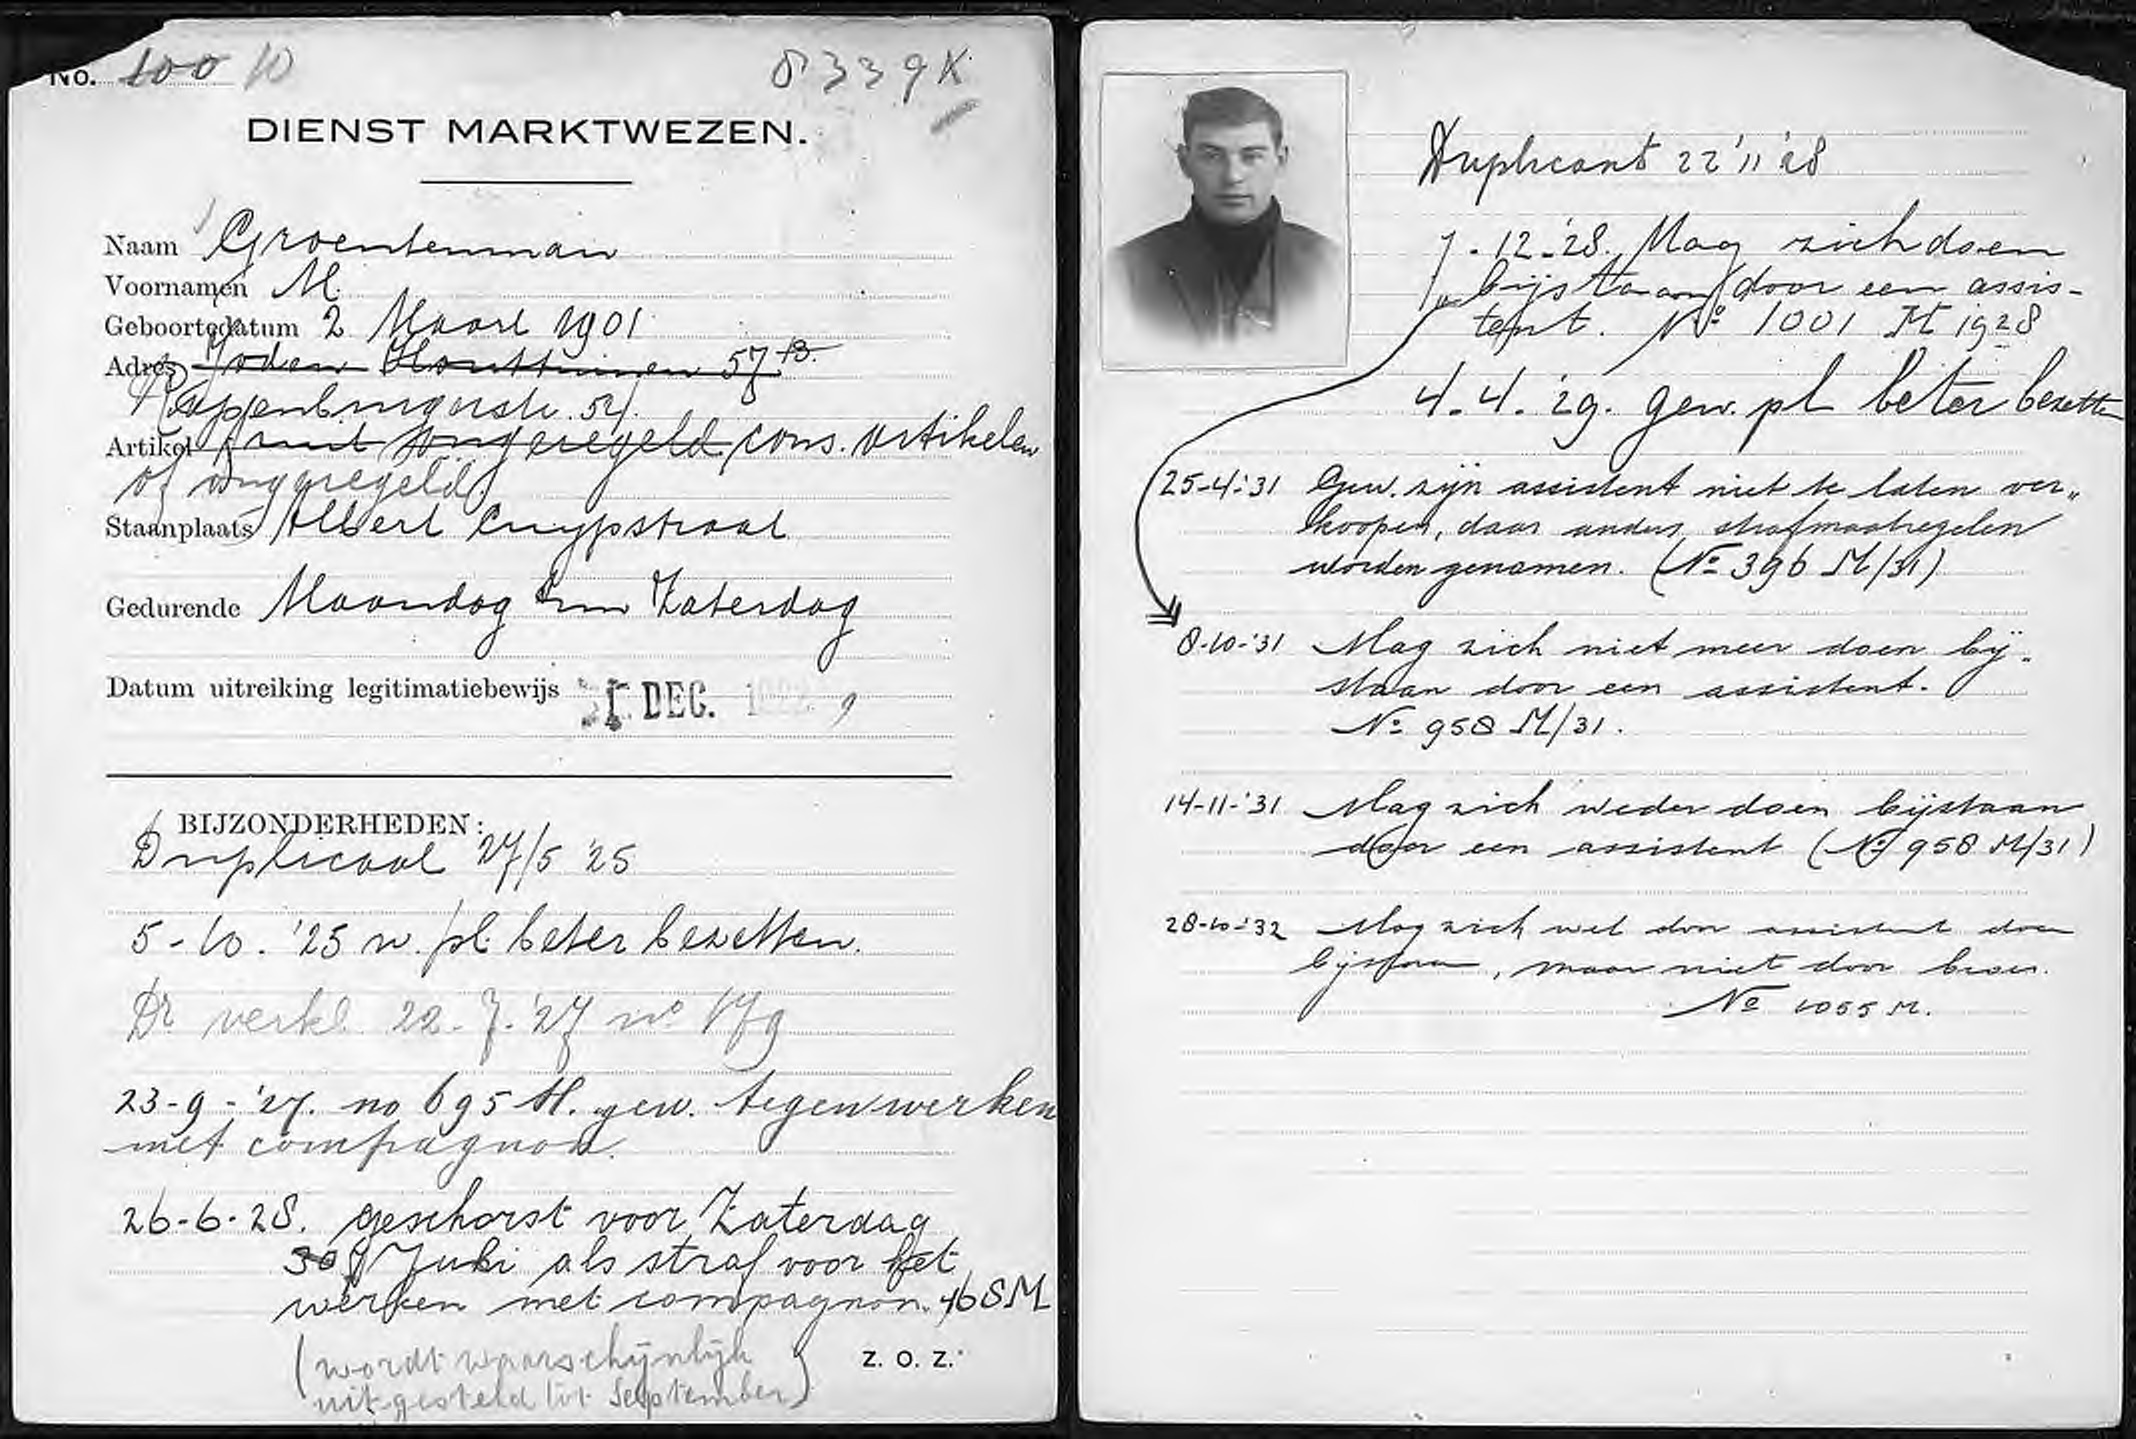 No. 100 10
8339K
DIENST MARKTWEZEN.
Naam Groentenman
Voornamen M.
Geboortedatum 2 Maart 1901
Adres Joden Houttuinen 57 hs.
Rapenburgerstr. 54
Artikel Fruit ongeregeld cons. artikelen
of ongeregeld
Staanplaats Albert Cuypstraat
Gedurende Maandag t/m Zaterdag
Datum uitreiking legitimatiebewijs DEC. 1922
BIJZONDERHEDEN:
Duplicaat 27/5 '25
5-10. '25 w. pl. beter bezetten.
Dr verkl. 22-7-'27 no 179
23-9-'27. no 695 M. gew. tegen werken
met compagnon.
26-6-28. geschorst voor Zaterdag
30 Juni als straf voor het
werken met compagnon. 468M
(wordt waarschijnlijk
uitgesteld tot September)
Z. O. Z.
Duplicaat 22 '11 '28
7-12-'28. Mag zich doen
bijstaan door een assis-
tent. No 1001 M 1928
4.4.'29. gew. pl beter bezetten
25-4-'31 Gew. zijn assistent niet te laten ver„
koopen, daar anders strafmaatregelen
worden genomen. (No 396 M/31)
8-10-'31 Mag zich niet meer doen bij-
staan door een assistent.
No 958 M/31.
14-11-'31 Mag zich weder doen bijstaan
door een assistent (No 958 M/31)
28-10-'32 Mag zich wel door assistent doen
bijstaan, maar niet door broer.
No 1055 M.